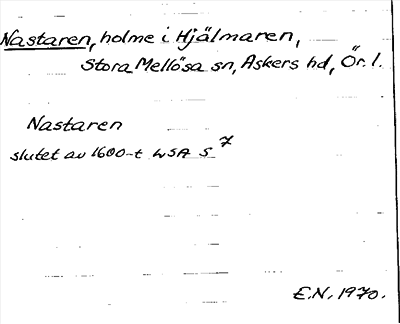 Nastaren, holme i Hjälmaren,
Stora Mellösa sn, Askers hd, Ör. l.
Nastaren
slutet av 1600-t LSA S 7
E.N. 1970.